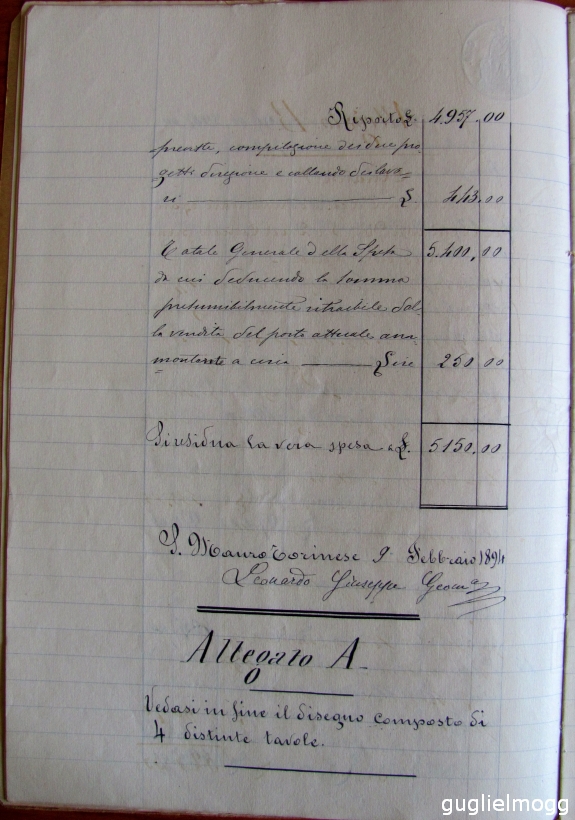 Riporto £. 4.957.00
preatte, compilazione dei due pro
getti direzione e collaudo deilavo=
ri £. 443.00
Totale Generale della Spesa 5.400,00
da cui deducendo la somma
presumibilmente ritraibile dal
la vendita del porto attuale am
montante a circa Lire 250 00
Siriduna la vera spesa a £. 5150.00
S. Mauro Torinese 9 Febbraio 1894
Leonardo Giuseppe Geom.
Allegato A.
Vedasi in fine il disegno composto di
4 distinte tavole.
guglielmogg